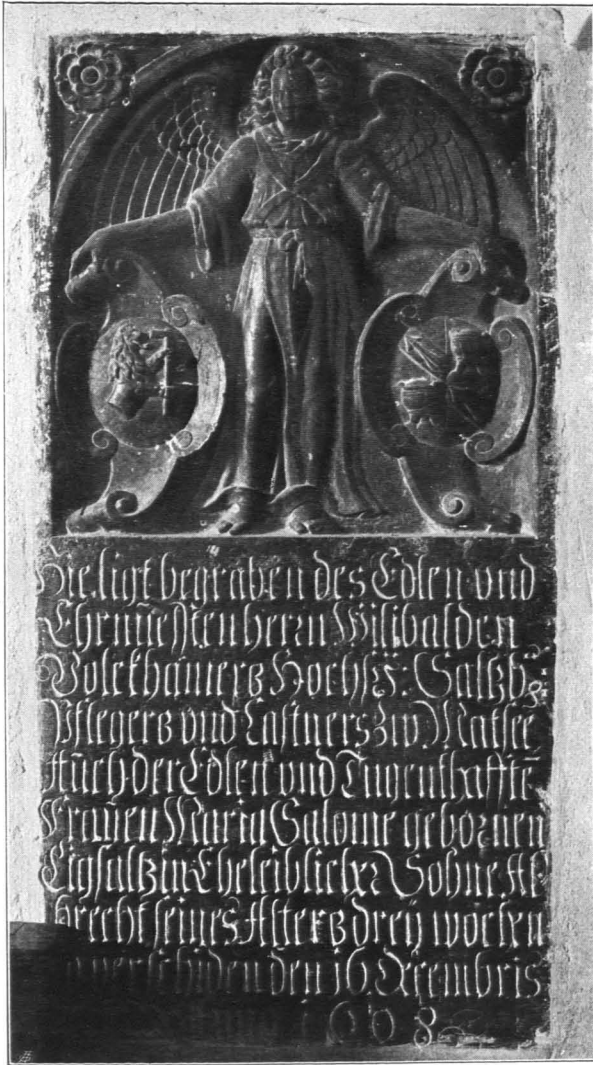 Hie ligt begraben des Edlen und
Ehrnūe⟨sten⟩ herrn Wilibalden
Volckhamerß Hochf: Saltzb:
Pflegerß vnd Castners zw Matsee
Auch der Edlen vnd Tugenthaffte̅
Frauen Maria Salome gebornen
Ligsaltzin Eheleiblicher Sohne Al
brecht seines Alterß dreÿ wochen
verschiden den 16 Decembris